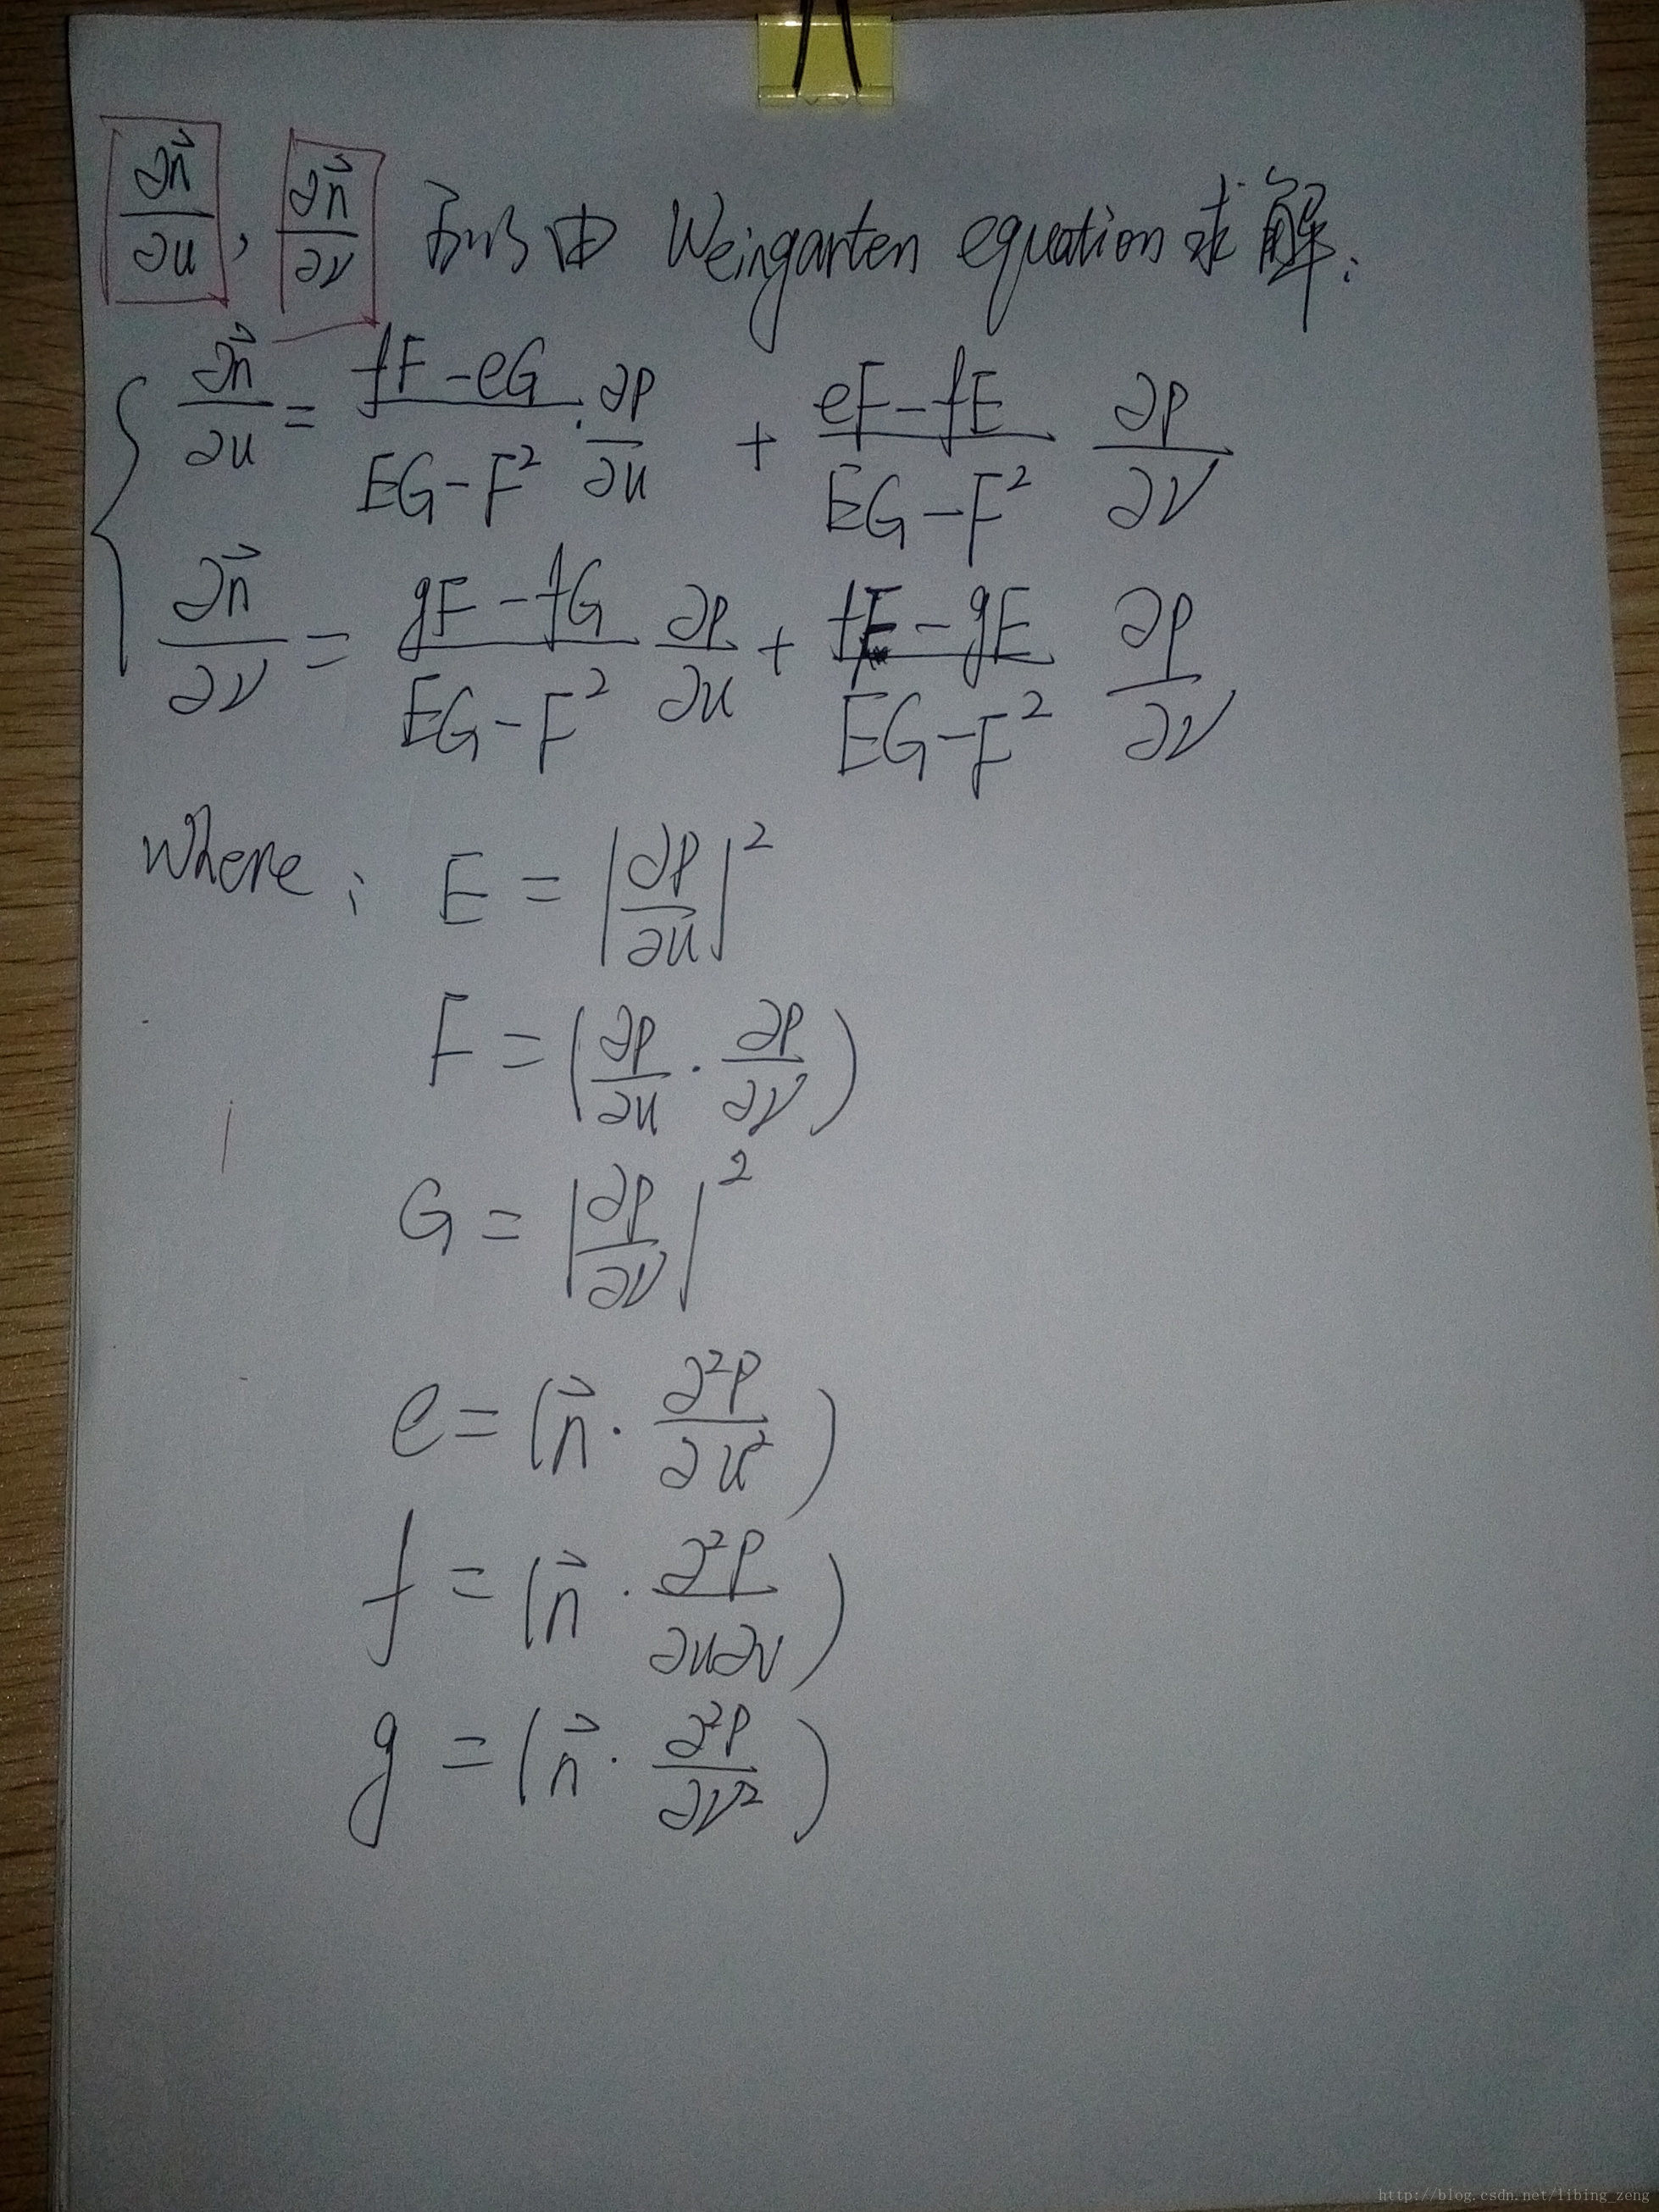 ∂n⃗/∂u, ∂n⃗/∂v 可以由 Weingarten equation 求解:
∂n⃗/∂u = (fF-eG)/(EG-F²) · ∂p/∂u + (eF-fE)/(EG-F²) ∂p/∂v
∂n⃗/∂v = (gF-fG)/(EG-F²) ∂p/∂u + (fF-gE)/(EG-F²) ∂p/∂v
where: E = |∂p/∂u|²
F = (∂p/∂u · ∂p/∂v)
G = |∂p/∂v|²
e = (n⃗ · ∂²p/∂u²)
f = (n⃗ · ∂²p/∂u∂v)
g = (n⃗ · ∂²p/∂v²)
http://blog.csdn.net/libing_zeng